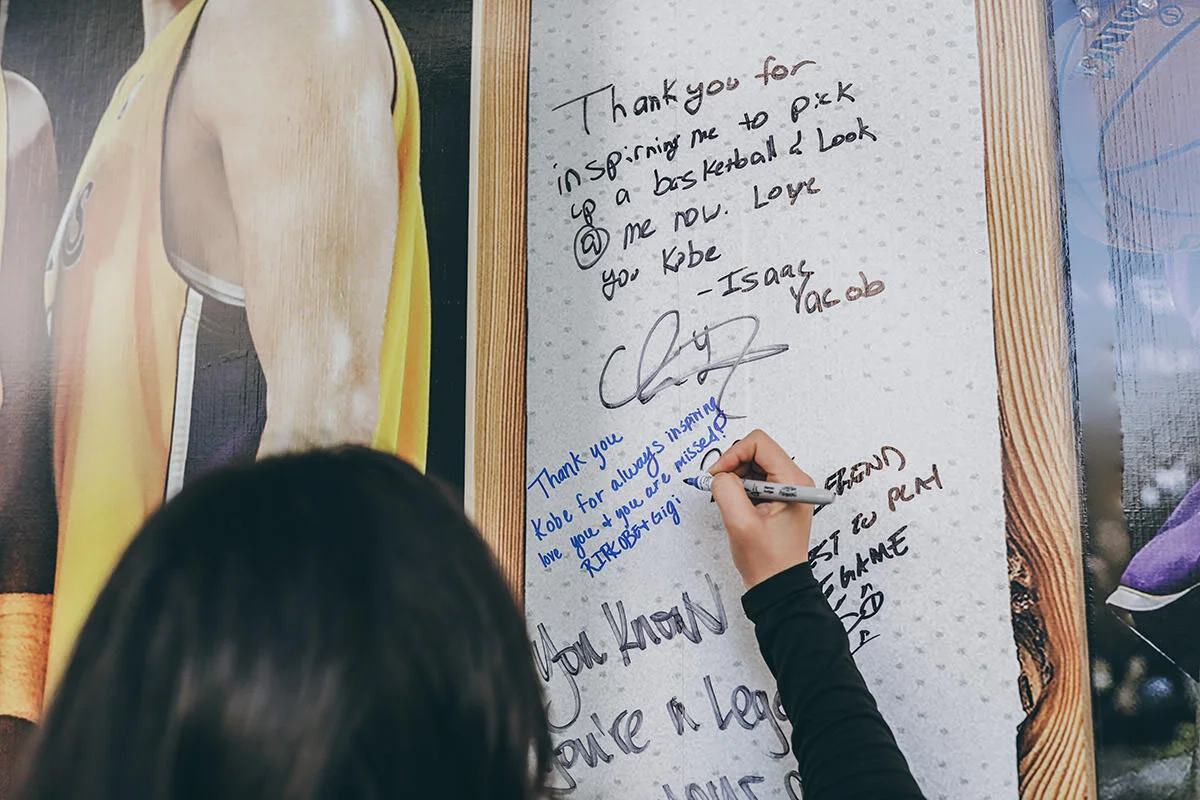 Thank you for
inspirning me to pick
up a basketball & Look
@ me now. Love
you Kobe
-Isaac
Yacob
Thank you
Kobe for always inspiring
love you & you are missed!
RIP KOBE + Gigi
TO PLAY
GAME
You Know
You're a Lege
your